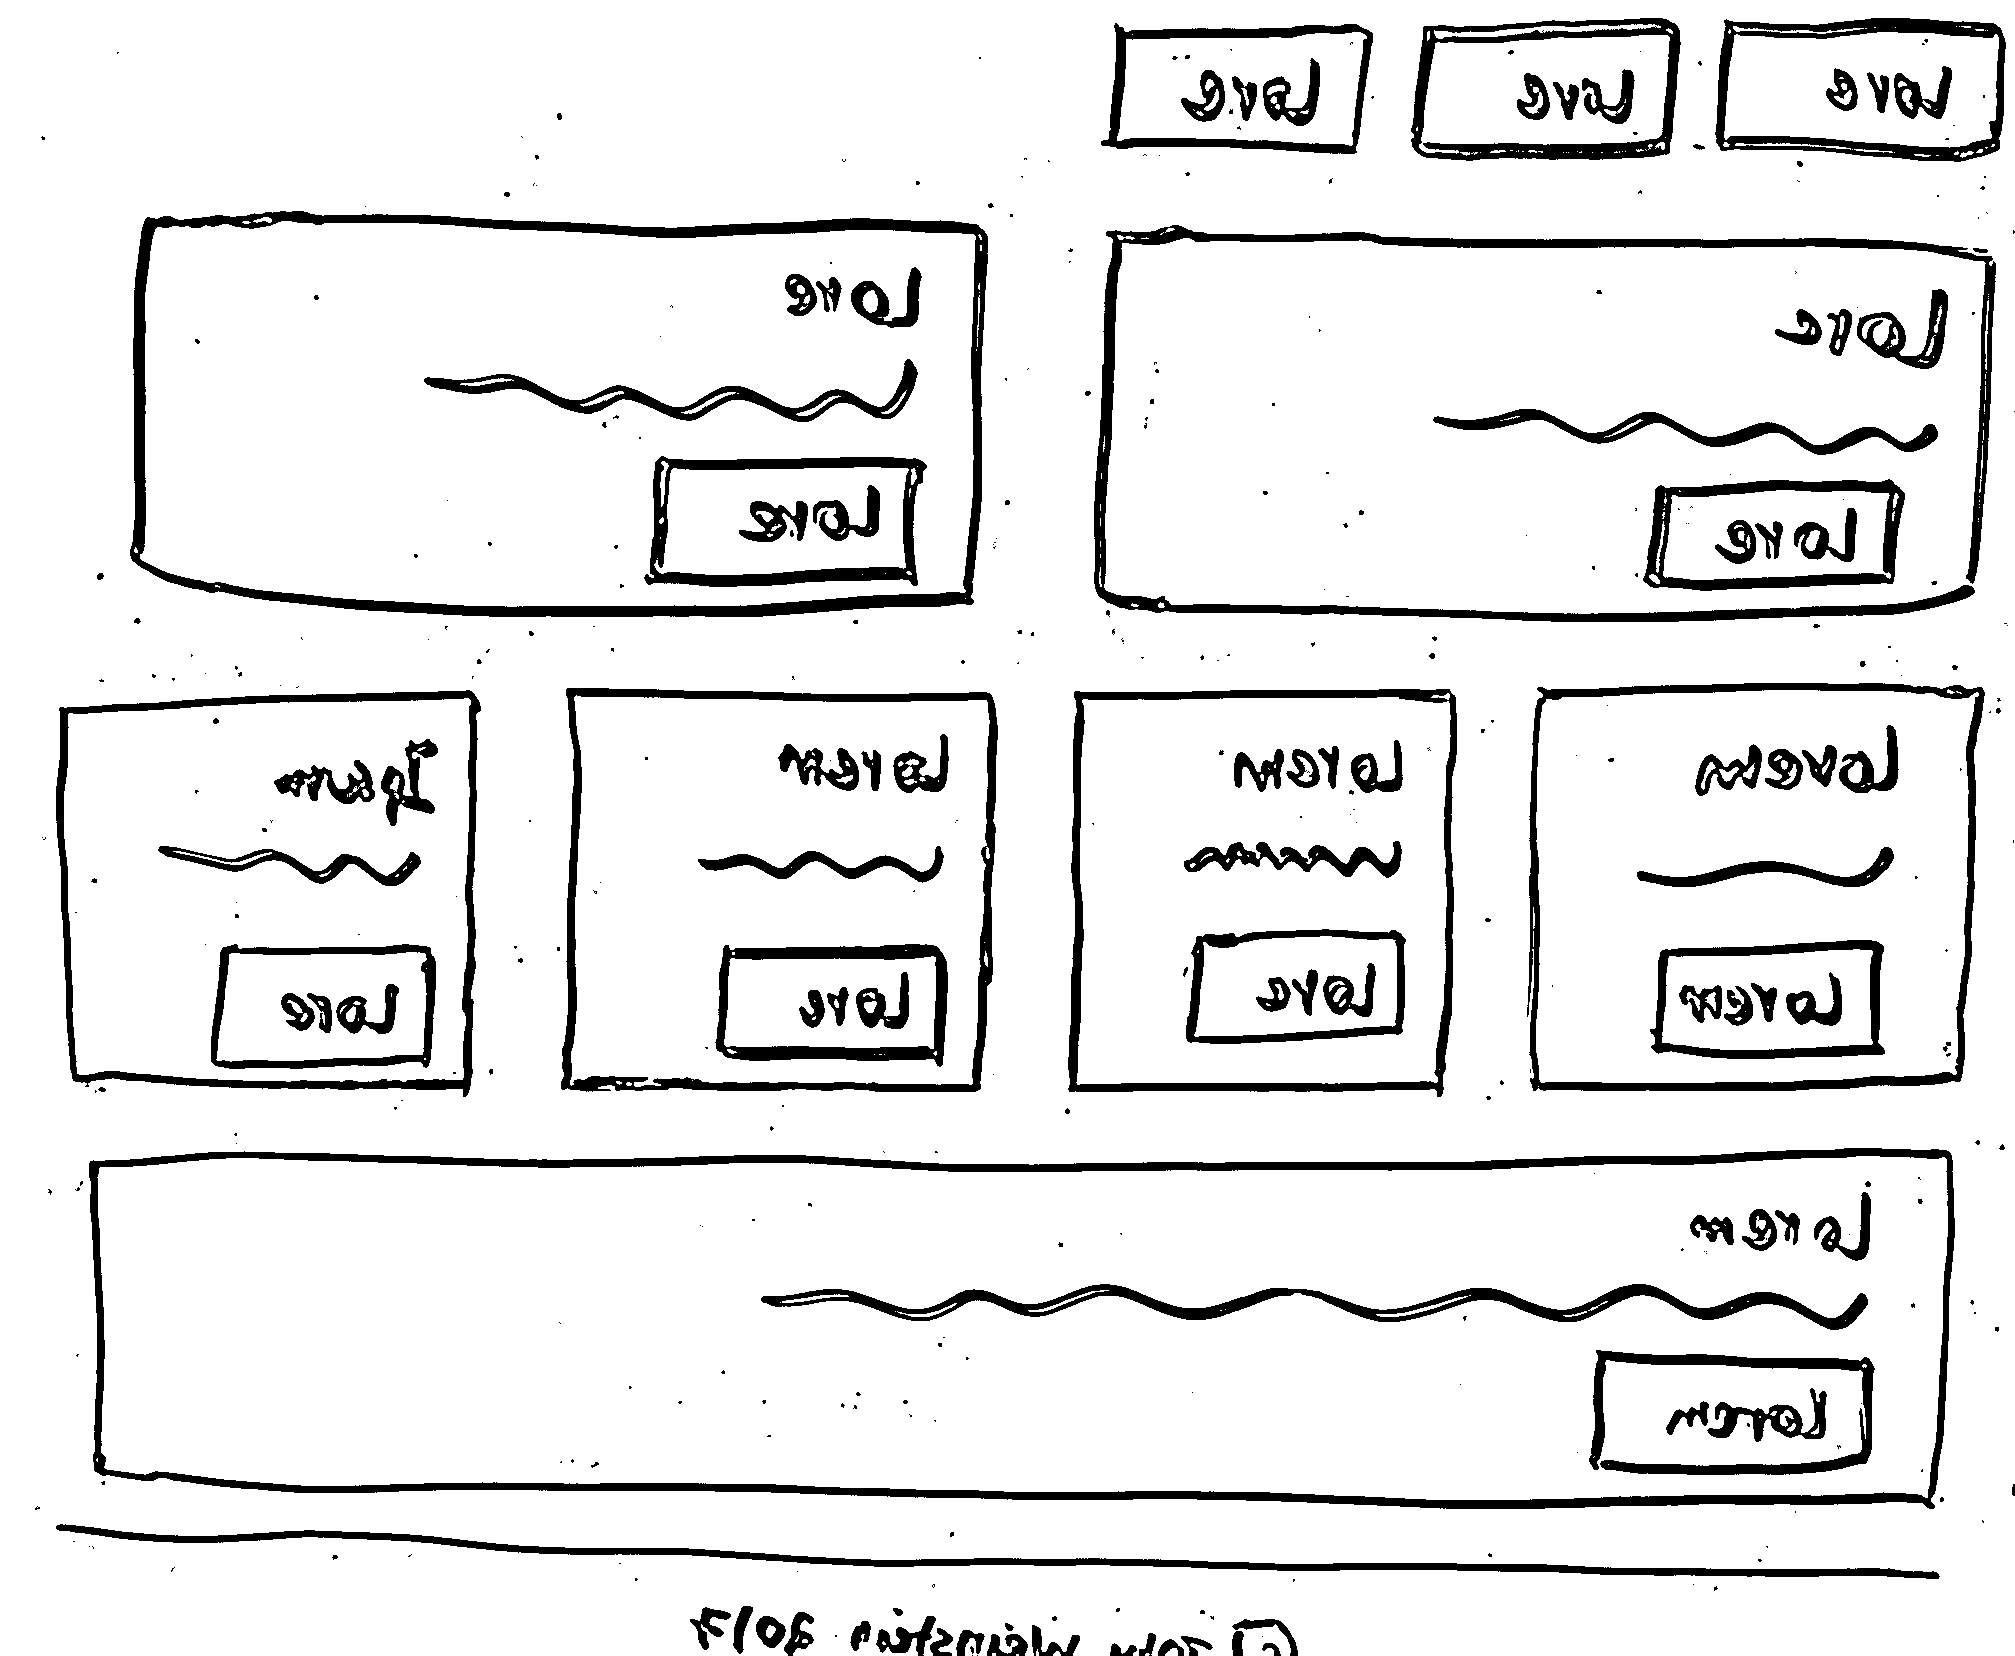 Lore Lore Lore
Lore
Lore
Lore
Lore
Lorem
Lorem
Lorem
Lore
Lorem
Lore
Ipsum
Lore
Lorem
Lorem
© John Weinstein 2017